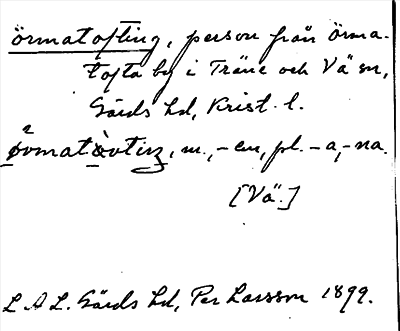 örmatofting, person från Örma-
tofta by i Träne och Vä sn,
Gärds hd, Krist. l.
m., -en, pl. -a, -na.
[Vä.]
L A L. Gärds hd, Per Larsson 1899.